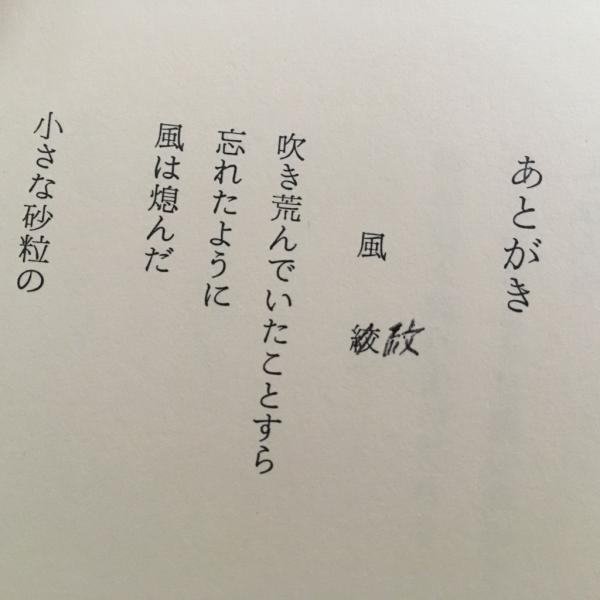 あとがき
紋
風 絞
吹き荒んでいたことすら
忘れたように
風は熄んだ
小さな砂粒の